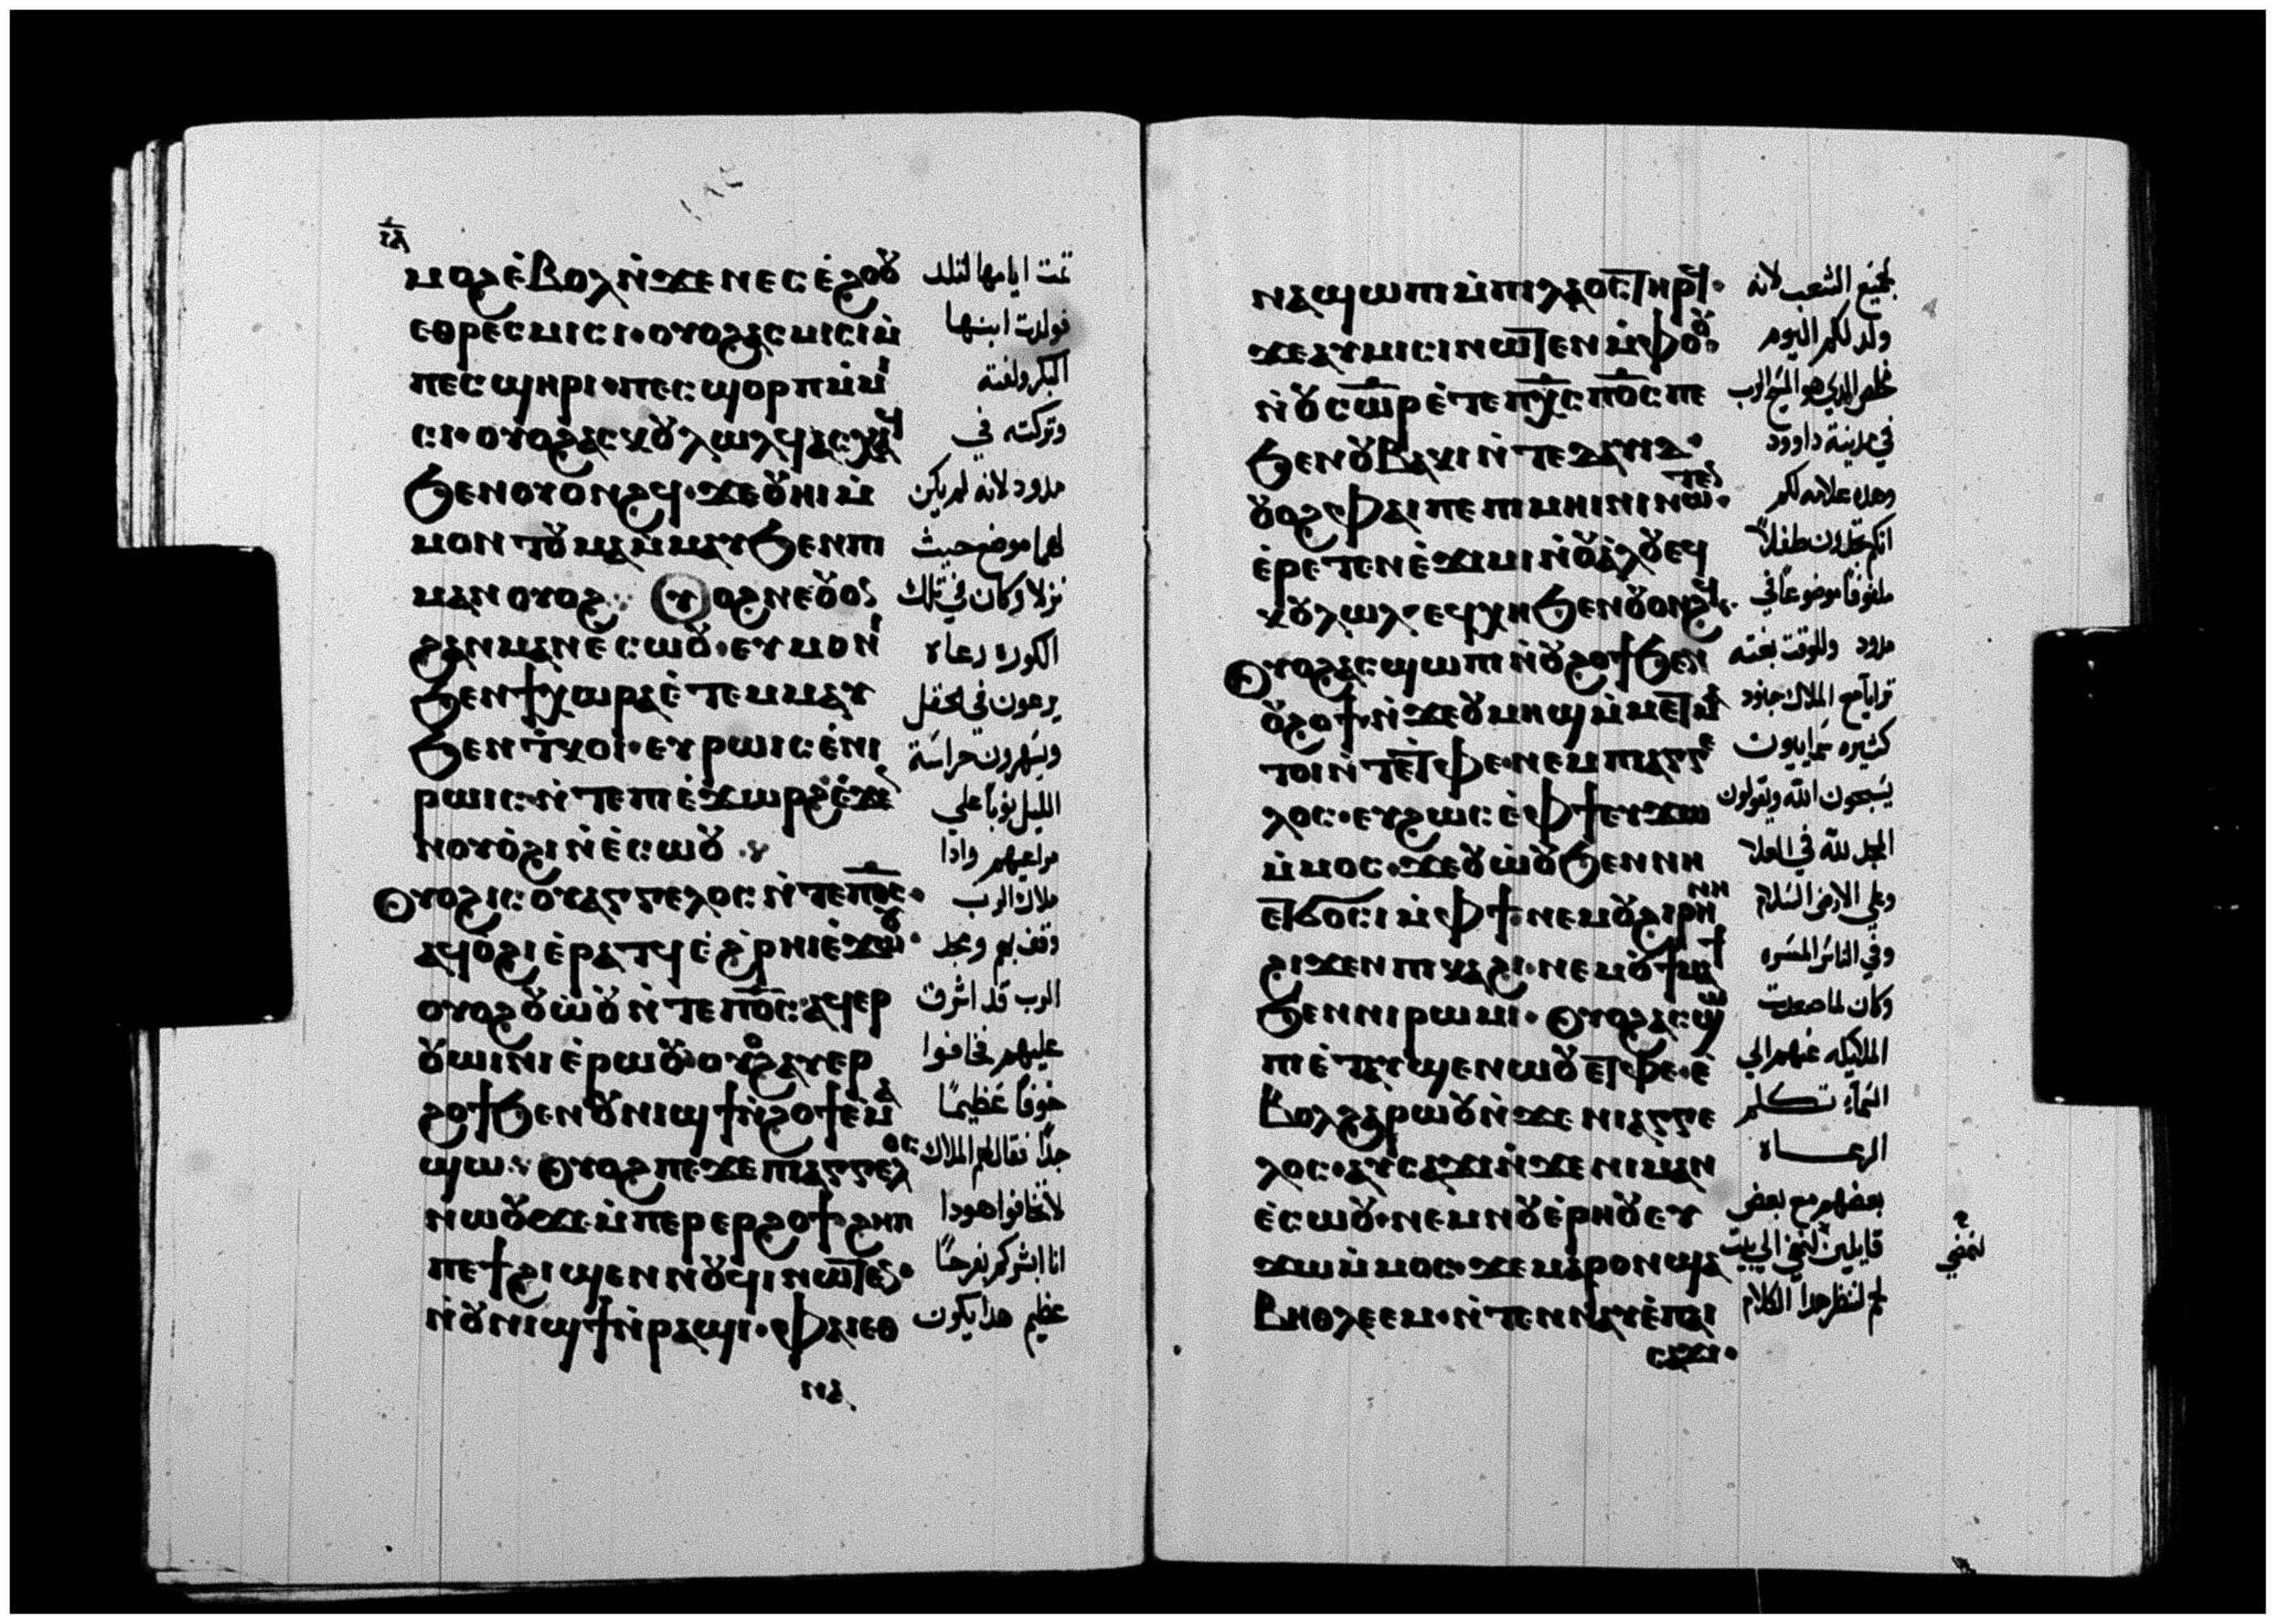 ⲓⲇ
ⲙⲟϩ ⲉ̀ⲃⲟⲗ ⲛ̀ϫⲉ ⲛⲉⲥ ⲉ̀ϩⲟⲟⲩ
ⲉⲑⲣⲉⲥⲙⲓⲥⲓ· ⲟⲩⲟϩ ⲁⲥⲙⲓⲥⲓ ⲙ̀
ⲡⲉⲥϣⲏⲣⲓ· ⲡⲉⲥϣⲟⲣⲡ ⲙ̀ⲙⲓ
ⲥⲓ· ⲟⲩⲟϩ ⲁⲥⲕⲟⲩⲗⲱⲗϥ ⲁⲥⲭⲁϥ
ϧⲉⲛ ⲟⲩⲟⲛϩϥ· ϫⲉ ⲟⲩⲏⲓ ⲙ̀
ⲙⲟⲛ ⲧⲟⲩ ⲙⲁ ⲙ̀ⲙⲁⲩ ϧⲉⲛ ⲡⲓ
ⲙⲁⲛⲟⲩⲟϩ
ϩⲁⲛⲙⲁⲛⲉ̀ⲥⲱⲟⲩ· ⲉⲩⲙⲟⲛⲓ
ϧⲉⲛ ϯⲭⲱⲣⲁ ⲉ̀ⲧⲉⲙⲙⲁⲩ
ϧⲉⲛ ⲧ̀ⲕⲟⲓ· ⲉⲩⲣⲱⲓⲥ ⲉ̀ⲛⲓ
ⲣⲱⲓⲥ· ⲛ̀ⲧⲉ ⲡⲓⲉ̀ϫⲱⲣϩ ⲉ̀ϫⲉⲛ
ⲛⲟⲩⲟ̀ϩⲓ ⲛ̀ⲉ̀ⲥⲱⲟⲩ
ⲟⲩⲟϩ ⲓⲥ ⲟⲩⲁⲅⲅⲉⲗⲟⲥ ⲛ̀ⲧⲉ ⲡⲟ̅ⲥ̅·
ⲁϥⲟ̀ϩⲓ ⲉ̀ⲣⲁⲧϥ ⲉ̀ϩ̀ⲣⲏⲓ ⲉ̀ϫⲱⲟⲩ·
ⲟⲩⲟϩ ⲟⲩⲱ̀ⲟⲩ ⲛ̀ⲧⲉ ⲡⲟ̅ⲥ̅· ⲁϥⲉⲣ
ⲟⲩⲱⲓⲛⲓ ⲉ̀ⲣⲱⲟⲩ· ⲟⲩⲟϩ ⲁⲩⲉⲣ
ϩⲟϯ ϧⲉⲛ ⲟⲩⲛⲓϣϯ ⲛ̀ϩⲟϯ ⲉⲙⲁ
ϣⲱ· ⲟⲩⲟϩ ⲡⲉϫⲉ ⲡⲓⲁⲅⲅⲉⲗⲟⲥ
ⲛⲱⲟⲩ ϫⲉ ⲙ̀ⲡⲉⲣⲉⲣϩⲟϯ ϩⲏⲡ
ⲡⲉ ϯϩⲓϣⲉⲛⲛⲟⲩϥⲓ ⲛⲱⲧⲉⲛ·
ⲛ̀ⲟⲩⲛⲓϣϯ ⲛ̀ⲣⲁϣⲓ· ⲫⲁⲓ ⲉⲑ
ⲛⲁ
تمت ايامها لتلد
فولدت ابنها
البكر ولفته
وتركته في
مدود لانه لم يكن
لهما موضع حيث
نزلا وكان في تلك
الكورة رعاه
يرعون في الحقل
ويسهرون حراسة
الليل نوبا علي
مراعيهم واذا
ملاك الرب
وقف بهم ومجد
الرب قد اشرق
عليهم فخافوا
خوفا عظيما
جدا فقال لهم الملاك
لا تخافوا هودا
انا ابشركم بفرحا
عظيم هدا يكون
ⲛⲁϣⲱⲡⲓ ⲙ̀ⲡⲓⲗⲁⲟⲥ ⲧⲏⲣϥ·
ϫⲉ ⲁⲩⲙⲓⲥⲓ ⲛⲱⲧⲉⲛ ⲙ̀ⲫⲟⲟⲩ
ⲛ̀ⲟⲩⲥⲱ̅ⲣ̅ ⲉ̀ⲧⲉ ⲡⲭ̅ⲥ̅ ⲡⲟ̅ⲥ̅ ⲡⲉ
ϧⲉⲛ ⲟⲩⲃⲁⲕⲓ ⲛ̀ⲧⲉ ⲇⲁⲩⲓⲇ·
ⲟⲩⲟϩ ⲫⲁⲓ ⲡⲉ ⲡⲓⲙⲏⲓⲛⲓ ⲛⲱⲧⲉⲛ·
ⲉ̀ⲣⲉⲧⲉⲛⲉ̀ϫⲓⲙⲓ ⲛ̀ⲟⲩⲁ̀ⲗⲟⲩ ⲉϥ
ⲕⲟⲩⲗⲱⲗ· ⲉϥⲭⲏ ϧⲉⲛ ⲟⲩⲟⲛϩϥ·
ⲟⲩⲟϩ ⲁⲥϣⲱⲡⲓ ⲛ̀ⲟⲩϩⲟϯ ϧⲉⲛ
ⲟⲩϩⲟϯ· ⲛ̀ϫⲉ ⲟⲩⲙⲏϣ ⲙ̀ⲙⲉⲧⲙⲁ
ⲧⲟⲓ ⲛ̀ⲧⲉ ⲧ̀ⲫⲉ· ⲛⲉⲙ ⲡⲓⲁⲅⲅⲉ
ⲗⲟⲥ· ⲉⲩϩⲱⲥ ⲉ̀ⲫϯ ⲉⲩϫⲱ
ⲙ̀ⲙⲟⲥ· ϫⲉ ⲟⲩⲱ̀ⲟⲩ ϧⲉⲛ ⲛⲏ
ⲉⲧϭⲟⲥⲓ ⲙ̀ⲫϯ· ⲛⲉⲙ ⲟⲩϩⲓⲣⲏⲛⲏ
ϩⲓϫⲉⲛ ⲡⲓⲕⲁϩⲓ· ⲛⲉⲙ ⲟⲩϯⲙⲁϯ
ϧⲉⲛ ⲛⲓⲣⲱⲙⲓ· ⲟⲩⲟϩ ⲁⲥϣⲱ
ⲡⲓ ⲉ̀ⲧⲁⲩϣⲉⲛⲱⲟⲩ ⲉⲧ̀ⲫⲉ· ⲉ̀
ⲃⲟⲗ ϩⲁⲣⲱⲟⲩ ⲛ̀ϫⲉ ⲛⲓⲁⲅⲅⲉ
ⲗⲟⲥ· ⲁⲩⲥⲁϫⲓ ⲛ̀ϫⲉ ⲛⲓⲙⲁⲛ
ⲉ̀ⲥⲱⲟⲩ· ⲛⲉⲙ ⲛⲟⲩⲉ̀ⲣⲏⲟⲩ ⲉⲩ
ϫⲱ ⲙ̀ⲙⲟⲥ· ϫⲉ ⲙⲁⲣⲟⲛ ϣⲁ
ⲃⲏⲑⲗⲉⲉⲙ· ⲛ̀ⲧⲉⲛⲛⲁⲩ ⲉ̀ⲡⲁⲓ
ⲥⲁϫⲓ·
لجميع الشعب لانه
ولد لكم اليوم
مخلص الدي هو المسيح الرب
في مدينة داوود
وهده علامه لكم
انكم تجدون طفلا
ملفوفا موضوعا في
مدود وللوقت بغته
ترايا مع الملاك جنود
كثيره سمايون
يسبحون الله ويقولون
المجد لله في العلا
وعلي الارض السلام
وفي الناس المسره
وكان لما صعدت
الملايكه عنهم الي
السماء تكلم
الرعاه
بعضهم مع بعض
قايلين لنمضي الي بيت
لحم لننظر هدا الكلام
لنمضي